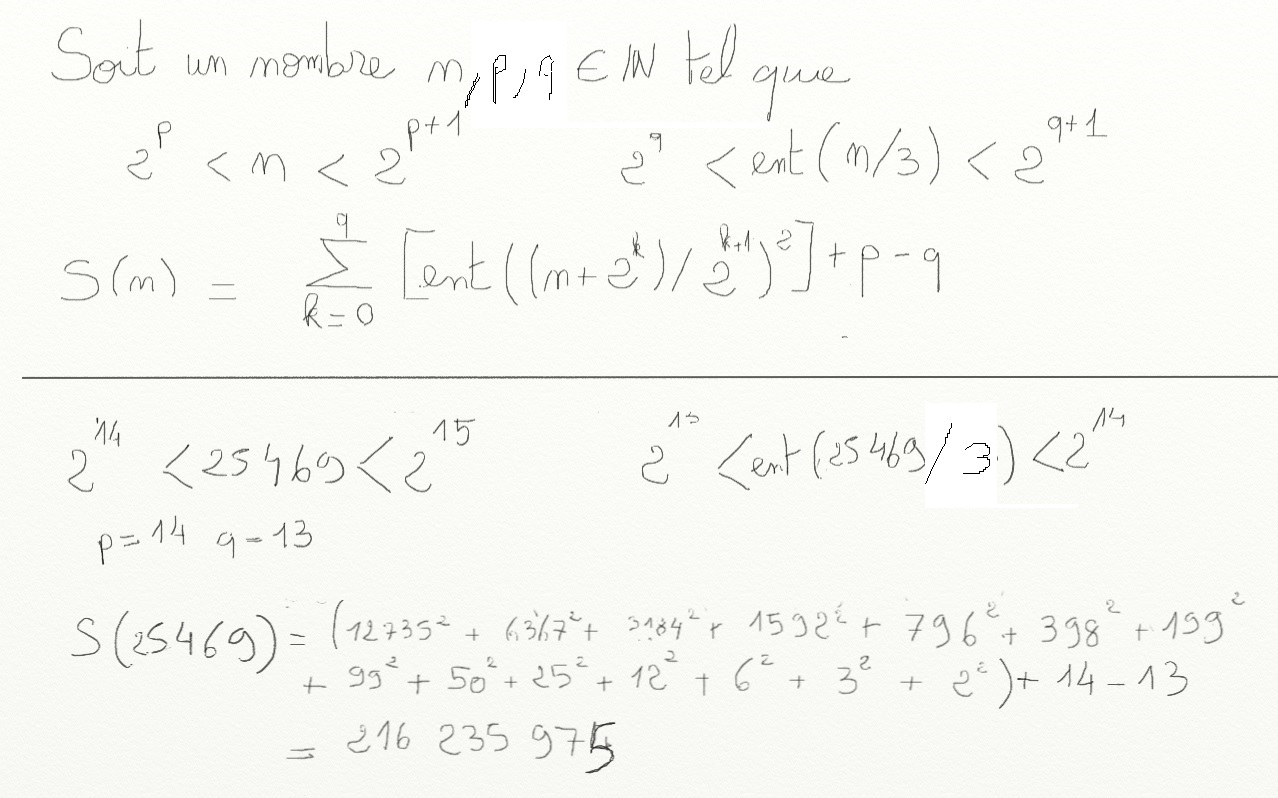 Soit un nombre n, p, q ∈ ℕ tel que
2^p < n < 2^(p+1) 2^q < ent(n/3) < 2^(q+1)
S(n) = ∑_{k=0}^{q} [ent((n+2^k)/2^(k+1))^2] + p - q
2^14 < 25469 < 2^15 2^13 < ent(25469/3) < 2^14
p=14 q=13
S(25469) = (12735² + 6367² + 3184² + 1592² + 796² + 398² + 199²
+ 99² + 50² + 25² + 12² + 6² + 3² + 2²) + 14 - 13
= 216 235 975